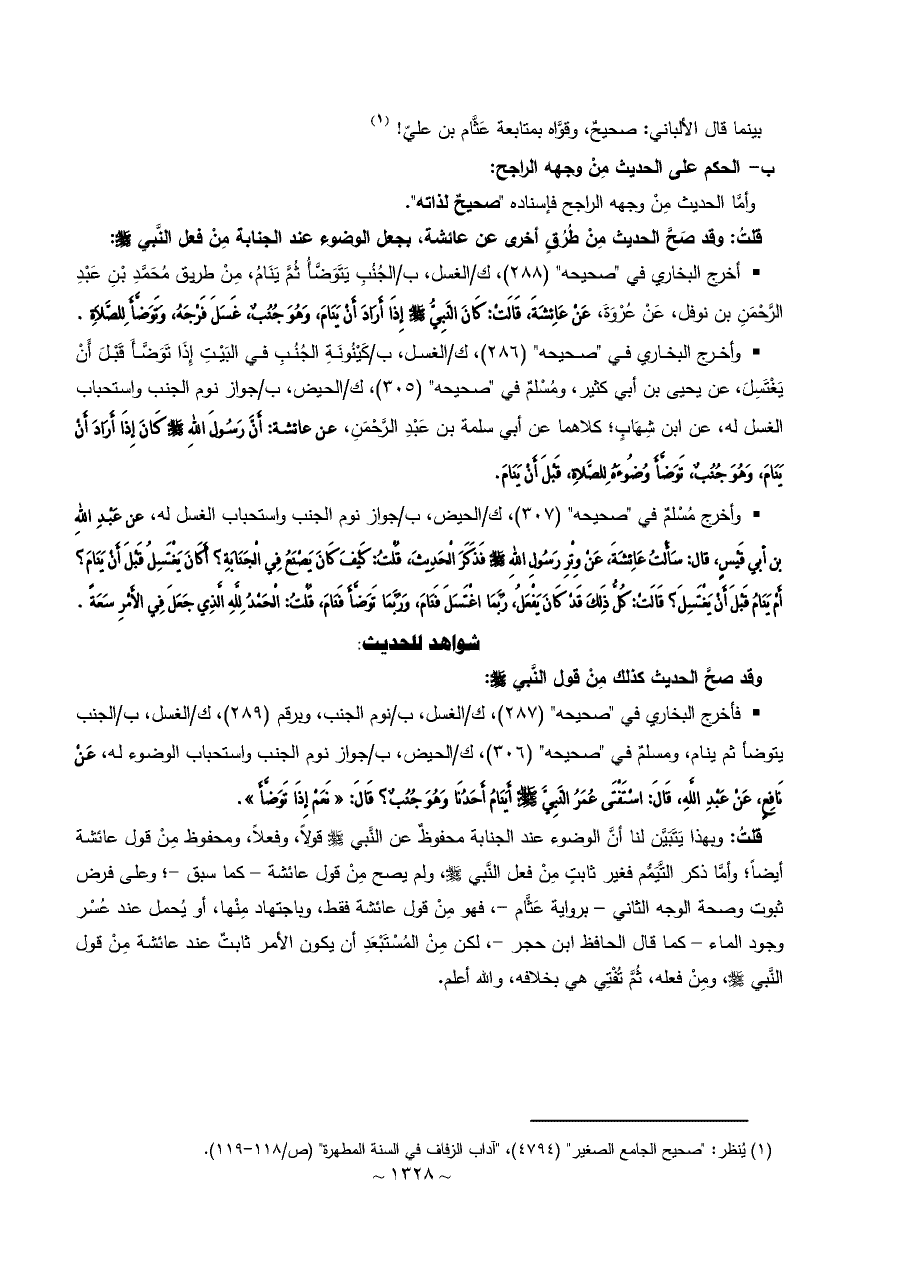 بينما قال الألباني: صحيحٌ، وقوَّاه بمتابعة عَثَّام بن عليّ! (١)
ب- الحكم على الحديث مِنْ وجهه الراجح:
وأمَّا الحديث مِنْ وجهه الراجح فإسناده "صحيحٌ لذاته".
قلتُ: وقد صَحَّ الحديث مِنْ طُرُقٍ أخرى عن عائشة، بجعل الوضوء عند الجنابة مِنْ فعل النَّبي ﷺ:
▪ أخرج البخاري في "صحيحه" (٢٨٨)، ك/الغسل، ب/الجُنُبِ يَتَوَضَّأُ ثُمَّ يَنَامُ، مِنْ طريق مُحَمَّدِ بْنِ عَبْدِ
الرَّحْمَنِ بن نوفل، عَنْ عُرْوَةَ، عَنْ عَائِشَةَ، قَالَتْ: كَانَ النَّبِيُّ ﷺ إِذَا أَرَادَ أَنْ يَنَامَ، وَهُوَ جُنُبٌ، غَسَلَ فَرْجَهُ، وَتَوَضَّأَ لِلصَّلاَةِ .
▪ وأخرج البخاري في "صحيحه" (٢٨٦)، ك/الغسل، ب/كَيْنُونَةِ الجُنُبِ في البَيْتِ إِذَا تَوَضَّأَ قَبْلَ أَنْ
يَغْتَسِلَ، عن يحيى بن أبي كثير، ومُسْلمٌ في "صحيحه" (٣٠٥)، ك/الحيض، ب/جواز نوم الجنب واستحباب
الغسل له، عن ابن شِهَابٍ؛ كلاهما عن أبي سلمة بن عَبْدِ الرَّحْمَنِ، عن عائشة: أَنَّ رَسُولَ اللهِ ﷺ كَانَ إِذَا أَرَادَ أَنْ
يَنَامَ، وَهُوَ جُنُبٌ، تَوَضَّأَ وُضُوءَهُ لِلصَّلاةِ، قَبْلَ أَنْ يَنَامَ.
▪ وأخرج مُسْلمٌ في "صحيحه" (٣٠٧)، ك/الحيض، ب/جواز نوم الجنب واستحباب الغسل له، عن عَبْدِ اللهِ
بن أبي قَيْسٍ، قال: سَأَلْتُ عَائِشَةَ، عَنْ وِتْرِ رَسُولِ اللهِ ﷺ فَذَكَرَ الْحَدِيثَ، قُلْتُ: كَيْفَ كَانَ يَصْنَعُ فِي الْجَنَابَةِ؟ أَكَانَ يَغْتَسِلُ قَبْلَ أَنْ يَنَامَ؟
أَمْ يَنَامُ قَبْلَ أَنْ يَغْتَسِلَ؟ قَالَتْ: كُلُّ ذَلِكَ قَدْ كَانَ يَفْعَلُ، رُبَّمَا اغْتَسَلَ فَنَامَ، وَرُبَّمَا تَوَضَّأَ فَنَامَ، قُلْتُ: الْحَمْدُ لِلَّهِ الَّذِي جَعَلَ فِي الأَمْرِ سَعَةً .
شواهد للحديث:
وقد صحَّ الحديث كذلك مِنْ قول النَّبي ﷺ:
▪ فأخرج البخاري في "صحيحه" (٢٨٧)، ك/الغسل، ب/نوم الجنب، وبرقم (٢٨٩)، ك/الغسل، ب/الجنب
يتوضأ ثم ينام، ومسلمٌ في "صحيحه" (٣٠٦)، ك/الحيض، ب/جواز نوم الجنب واستحباب الوضوء له، عَنْ
نَافِعٍ، عَنْ عَبْدِ اللَّهِ، قَالَ: اسْتَفْتَى عُمَرُ النَّبِيَّ ﷺ أَيَنَامُ أَحَدُنَا وَهُوَ جُنُبٌ؟ قَالَ: « نَعَمْ إِذَا تَوَضَّأَ ».
قلتُ: وبهذا يَتَبَيَّن لنا أنَّ الوضوء عند الجنابة محفوظٌ عن النَّبي ﷺ قولاً، وفعلاً، ومحفوظ مِنْ قول عائشة
أيضاً؛ وأمَّا ذكر التَّيَمُّم فغير ثابتٍ مِنْ فعل النَّبي ﷺ، ولم يصح مِنْ قول عائشة – كما سبق –؛ وعلى فرض
ثبوت وصحة الوجه الثاني – برواية عَثَّام –، فهو مِنْ قول عائشة فقط، وباجتهاد مِنْها، أو يُحمل عند عُسْر
وجود الماء – كما قال الحافظ ابن حجر –، لكن مِنْ المُسْتَبْعَدِ أن يكون الأمر ثابتٌ عند عائشة مِنْ قول
النَّبي ﷺ، ومِنْ فعله، ثُمَّ تُفْتِي هي بخلافه، والله أعلم.
(١) يُنظر: "صحيح الجامع الصغير" (٤٧٩٤)، "آداب الزفاف في السنة المطهرة" (ص/١١٨-١١٩).
~ ١٣٢٨ ~